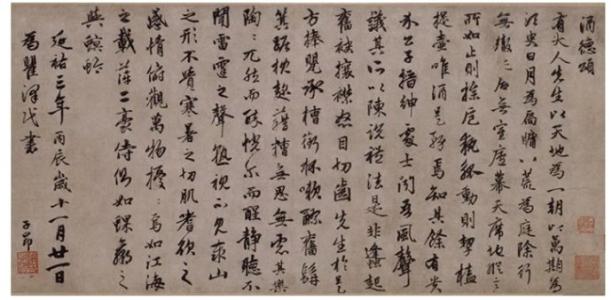 酒德頌
有大人先生以天地為一朝以萬期為
須臾日月為扃牖八荒為庭除行
無轍跡居無室廬幕天席地縱意
所如止則操卮執觚動則挈榼
提壺唯酒是務焉知其餘有貴
介公子搢紳處士聞吾風聲
議其所以陳說禮法是非蠭起
奮袂攘襟怒目切齒先生於是
方捧甖承槽銜杯漱醪奮髯
箕踞枕麴藉糟無思無慮其樂
陶陶兀然而醉恍尔而醒靜聽不
聞雷霆之聲孰視不見泰山
之形不覺寒暑之切肌嗜欲之
感情俯觀萬物擾擾焉如江海
之載萍二豪侍側如蜾蠃之
與螟蛉
延祐三年丙辰歲十一月廿一日
為瞿澤民書
子昂